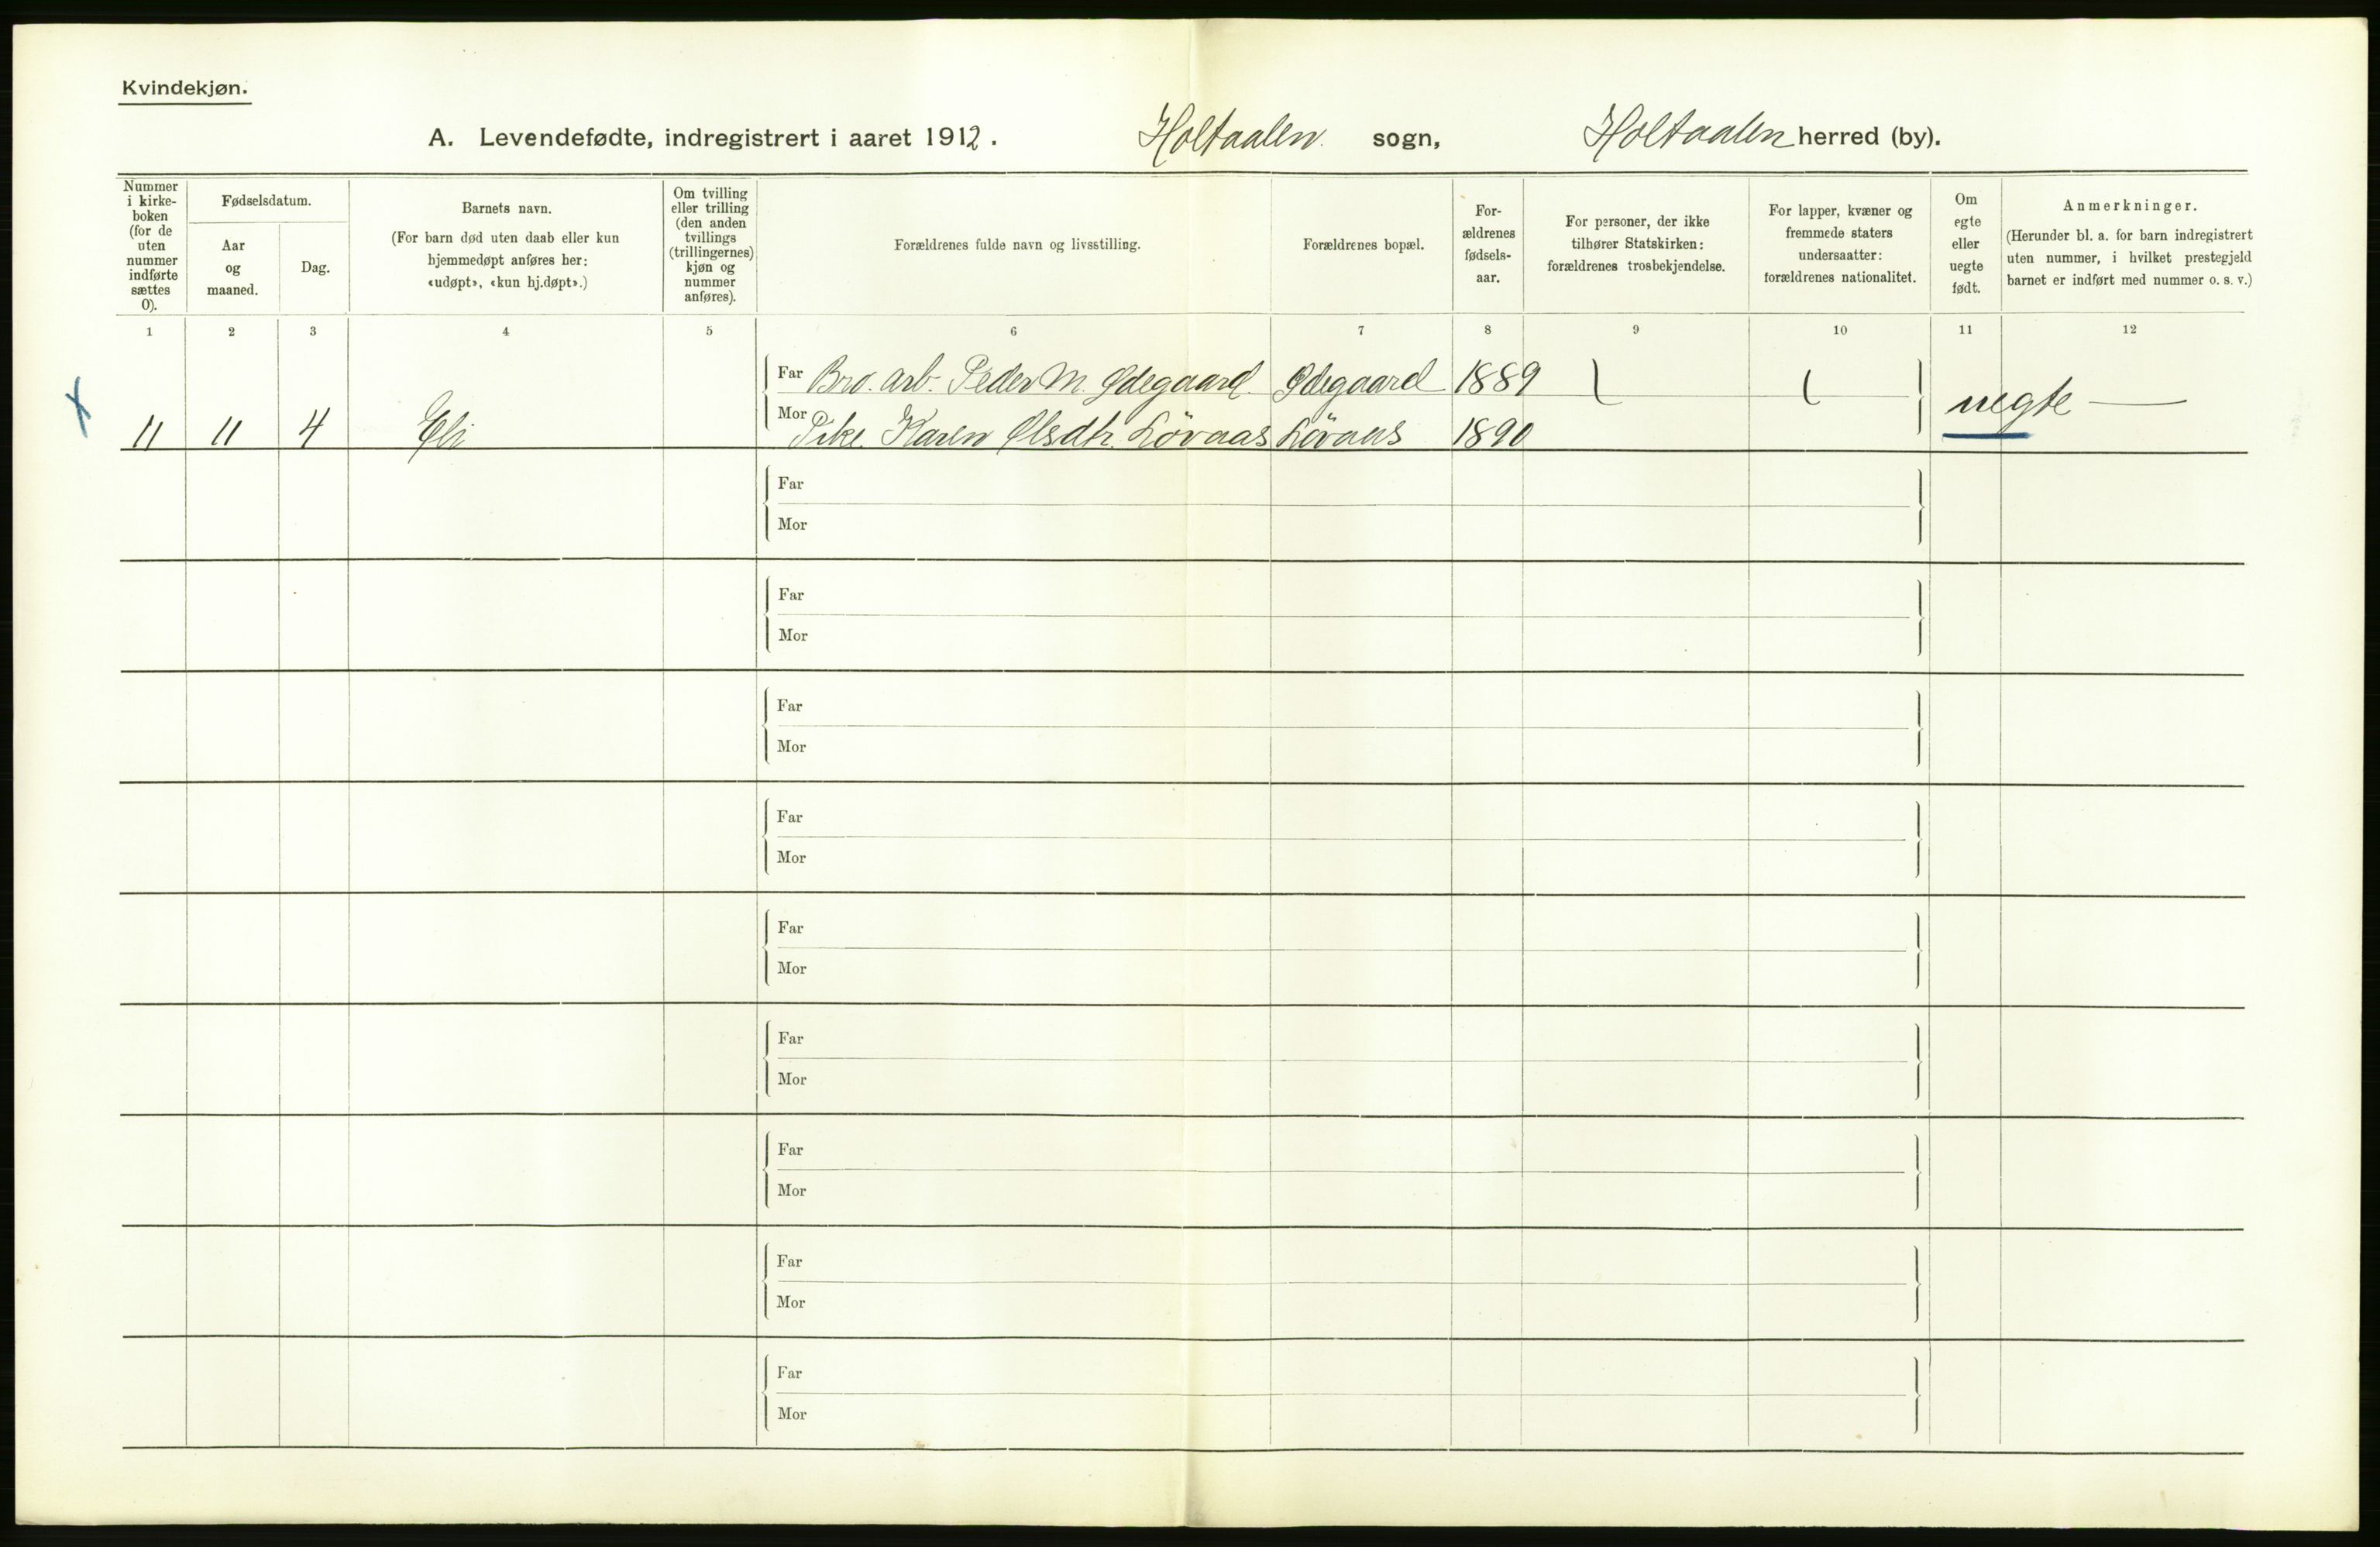 Kvindekjøn.
A. Levendefødte, indregistrert i aaret 1912. Holtaalen sogn, Holtaalen herred (by).
Nummer i kirke- boken (for de uten nummer indførte sættes 0).
Fødselsdatum.
Aar og maaned.
Dag.
Barnets navn.
(For barn død uten daab eller kun hjemmedøpt anføres her: «udøpt», «kun hj.døpt».)
Om tvilling eller trilling (den anden tvillings (trillingernes) kjøn og nummer anføres).
Forældrenes fulde navn og livsstilling.
Forældrenes bopæl.
For- ældrenes fødsels- aar.
For personer, der ikke tilhører Statskirken: forældrenes trosbekjendelse.
For lapper, kvæner og fremmede staters undersaatter: forældrenes nationalitet.
Om egte eller uegte født.
Anmerkninger.
(Herunder bl. a. for barn indregistrert uten nummer, i hvilket prestegjeld barnet er indført med nummer o. s. v.)
1 2 3 4 5 6 7 8 9 10 11 12
Far Bro. arb. Peder M. Ødegaard. Ødegaard 1889
uegte —
11 11 4 Eli Mor Pike Karen Olsdtr. Lövaas Lövaas 1890
Far
Mor
Far
Mor
Far
Mor
Far
Mor
Far
Mor
Far
Mor
Far
Mor
Far
Mor
Far
Mor